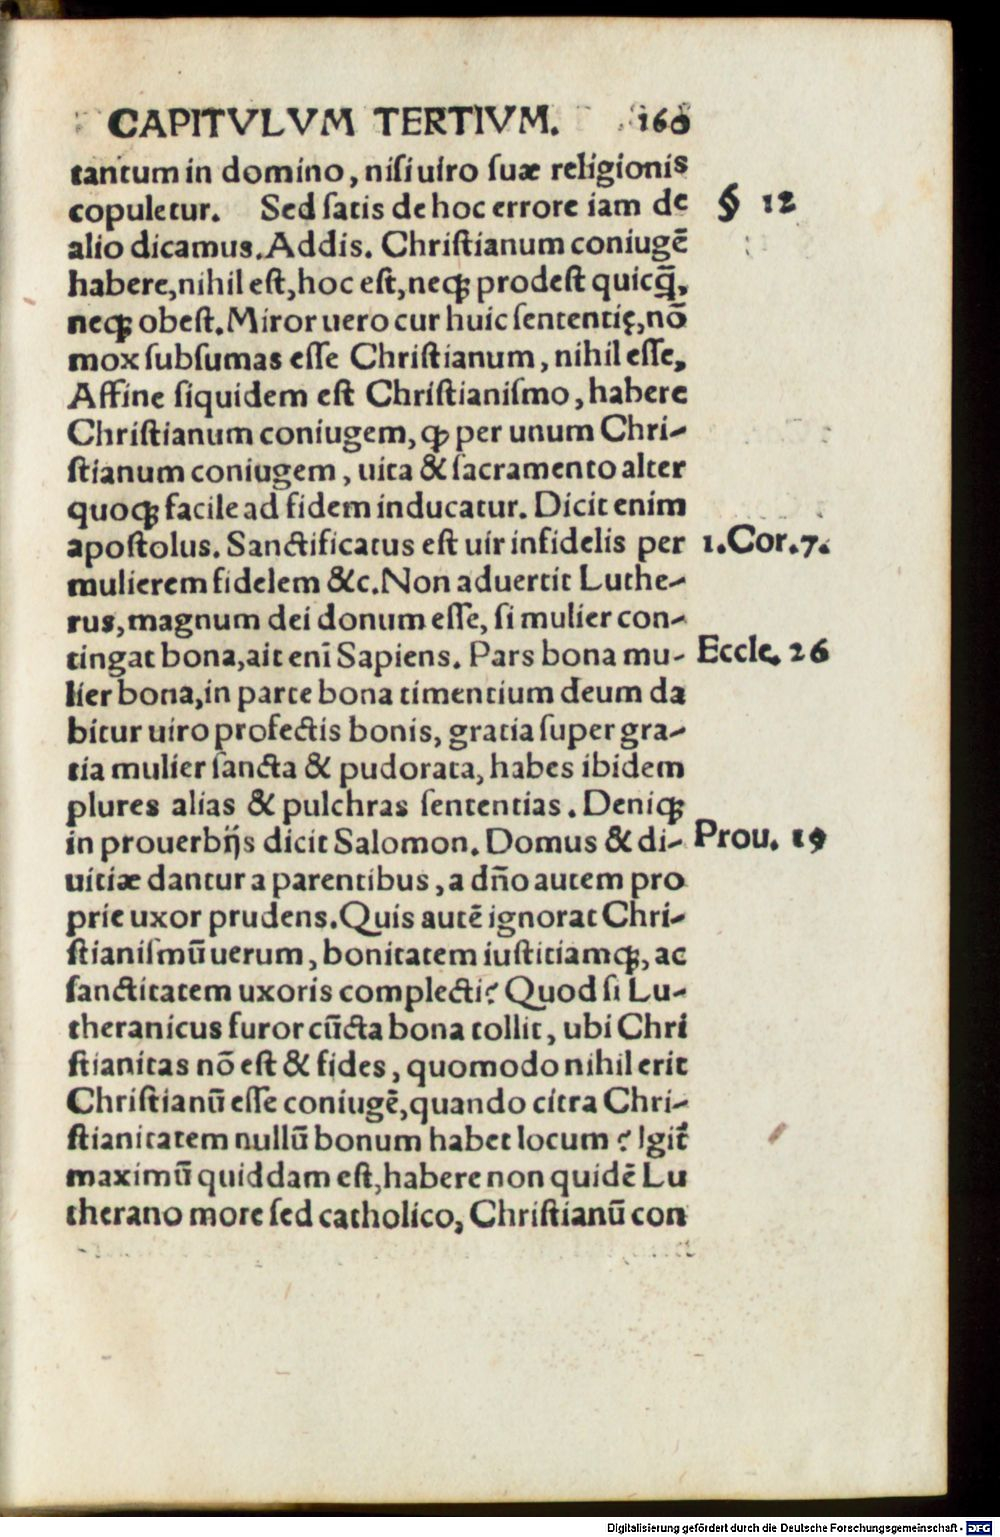 CAPITVLVM TERTIVM. 160
tantum in domino, niſi uiro ſuæ religionis
copuletur. Sed ſatis de hoc errore iam de § 12
alio dicamus. Addis. Chriſtianum coniugē
habere, nihil eſt, hoc eſt, neqꝫ prodeſt quicq̄,
neqꝫ obeſt. Miror uero cur huic ſententię, nō
mox ſubſumas eſſe Chriſtianum, nihil eſſe,
Affine ſiquidem eſt Chriſtianiſmo, habere
Chriſtianum coniugem, ꝙ per unum Chri-
ſtianum coniugem, uita & ſacramento alter
quoqꝫ facile ad fidem inducatur. Dicit enim
apoſtolus. Sanctificatus eſt uir infidelis per 1.Cor.7.
mulierem fidelem &c. Non aduertit Luthe-
rus, magnum dei donum eſſe, ſi mulier con-
tingat bona, ait enī Sapiens. Pars bona mu- Eccle. 26
lier bona, in parte bona timentium deum da
bitur uiro profectis bonis, gratia ſuper gra-
tia mulier ſancta & pudorata, habes ibidem
plures alias & pulchras ſententias. Deniqꝫ
in prouerbijs dicit Salomon. Domus & di- Prou. 19
uitiæ dantur a parentibus, a dn̄o autem pro
prie uxor prudens. Quis autē ignorat Chri-
ſtianiſmū uerum, bonitatem iuſtitiamqꝫ, ac
ſanctitatem uxoris complecti? Quod ſi Lu-
theranicus furor cūcta bona tollit, ubi Chri
ſtianitas nō eſt & fides, quomodo nihil erit
Chriſtianū eſſe coniugē, quando citra Chri-
ſtianitatem nullū bonum habet locum? Igit̄
maximū quiddam eſt, habere non quidē Lu
therano more ſed catholico, Chriſtianū con
Digitalisierung gefördert durch die Deutsche Forschungsgemeinschaft - DFG